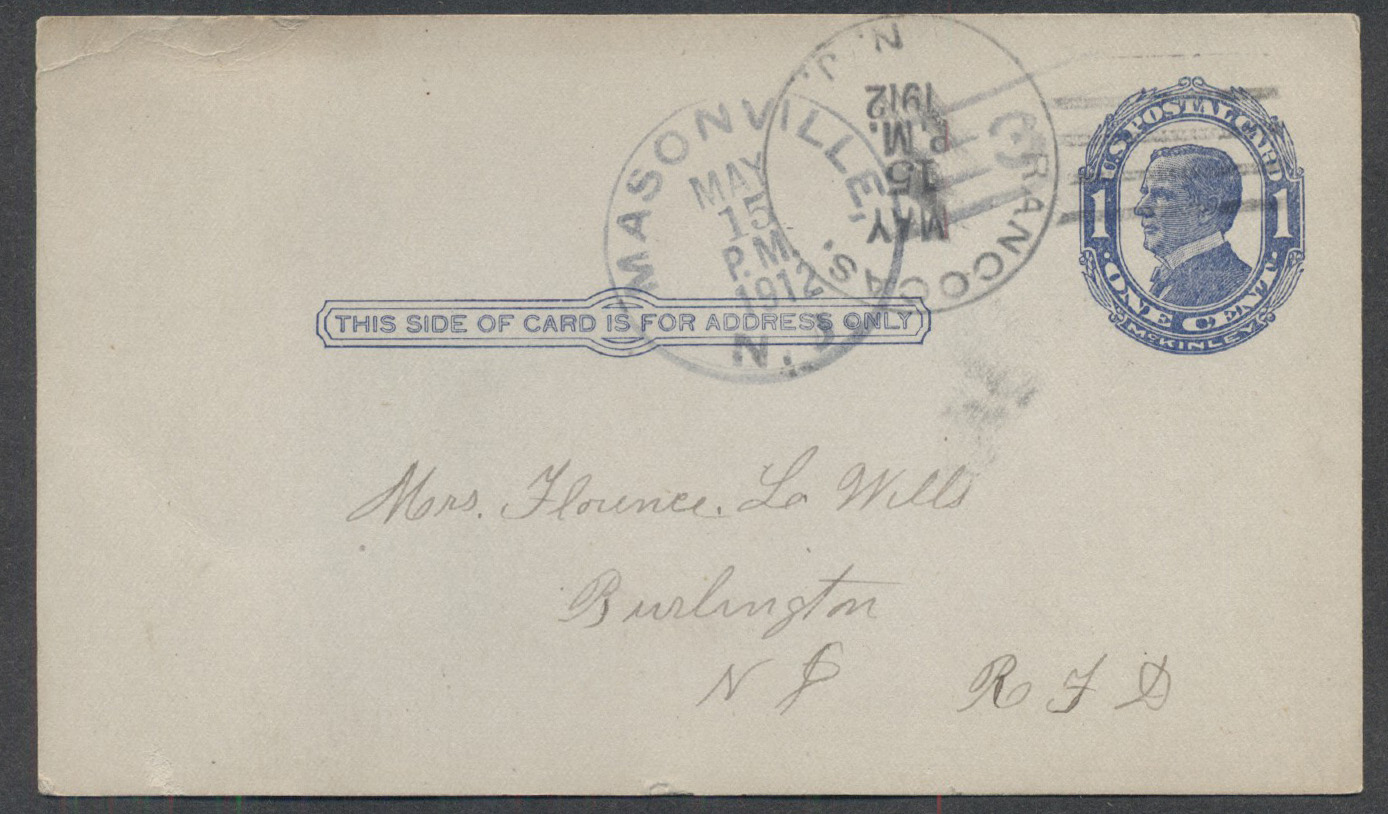 MASONVILLE,
MAY
15
P.M.
1912
N.J.
RANCOCAS.
N.J.
MAY
15
P.M.
1912
U.S. POSTAL CARD
1 1
·ONE CENT·
McKINLEY
THIS SIDE OF CARD IS FOR ADDRESS ONLY
Mrs. Florence. La Wills
Burlington
N J R F D